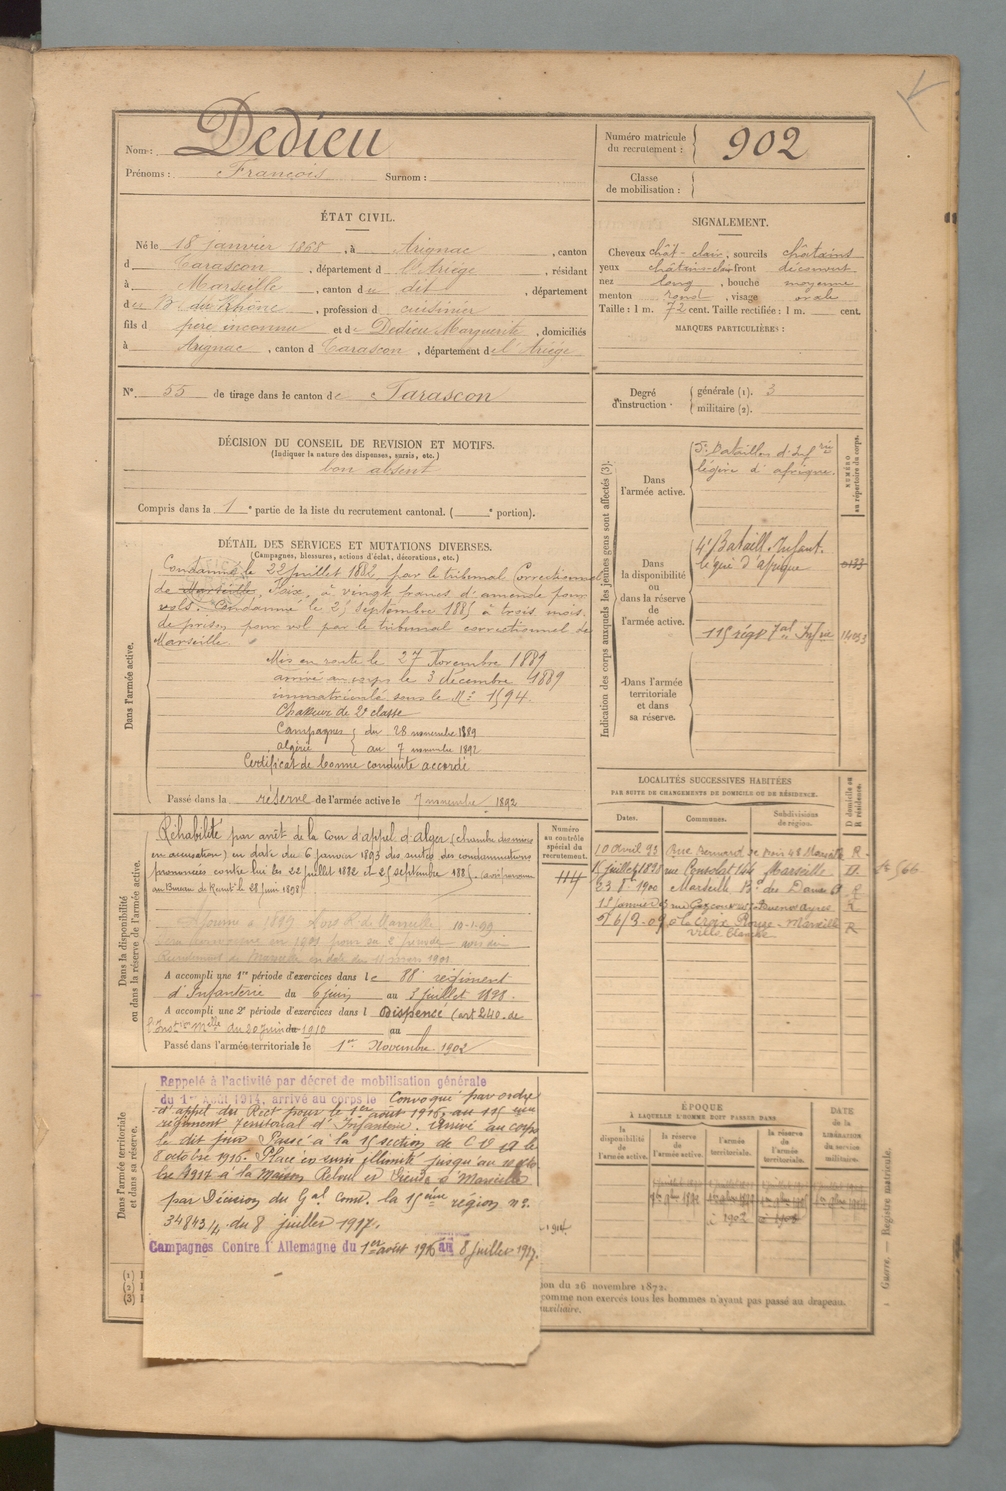 Nom : Dedieu
Prénoms : François Surnom :
Numéro matricule du recrutement : 902
Classe de mobilisation :
ÉTAT CIVIL.
Né le 18 janvier 1868, à Arignac, canton
d Tarascon, département d l'Ariège, résidant
à Marseille, canton d u dit, département
d es B. du Rhône, profession d cuisinier
fils d père inconnu et de Dedieu Marguerite, domiciliés
à Arignac, canton d Tarascon, département de l'Ariège
SIGNALEMENT.
Cheveux chât-clair, sourcils châtains
yeux châtins-clair front découvert
nez long, bouche moyenne
menton rond, visage ovale
Taille : 1 m. 72 cent. Taille rectifiée : 1 m. cent.
MARQUES PARTICULIÈRES :
N° 55 de tirage dans le canton de Tarascon
Degré d'instruction. générale (1). 3
militaire (2).
DÉCISION DU CONSEIL DE REVISION ET MOTIFS.
(Indiquer la nature des dispenses, sursis, etc.)
bon absent
Compris dans la 1e partie de la liste du recrutement cantonal. ( e portion).
DÉTAIL DES SERVICES ET MUTATIONS DIVERSES.
(Campagnes, blessures, actions d'éclat, décorations, etc.)
Dans l'armée active.
Condamné le 22 juillet 1882, par le tribunal Correctionnel
de Marseille, Foix, à vingt francs d'amende pour
vols. Condamné le 25 septembre 1885 à trois mois
de prison pour vol par le tribunal correctionnel de
Marseille.
Mis en route le 27 Novembre 1889
arrivé au corps le 3 décembre 1889
immatriculé sous le N° 1594.
Chasseur de 2e classe
Campagnes du 28 novembre 1889
algérie au 7 novembre 1892
Certificat de bonne conduite accordé
Passé dans la réserve de l'armée active le 7 novembre 1892
Indication des corps auxquels les jeunes gens sont affectés (3).
NUMÉRO au répertoire du corps.
Dans l'armée active.
5e Bataillon d'Infrie
légère d'afrique.
Dans la disponibilité ou dans la réserve de l'armée active.
4e Bataill. Infant.
légère d'afrique
115 régt Tal Infie
Dans l'armée territoriale et dans sa réserve.
LOCALITÉS SUCCESSIVES HABITÉES
PAR SUITE DE CHANGEMENTS DE DOMICILE OU DE RÉSIDENCE.
Dates. Communes. Subdivisions de région. D domicile ou R résidence.
10 avril 93 Rue Bernard de bois 48 Marseille R
juillet 1898 rue Consolat 144 Marseille
23 1900 Marseille Bd des Dames R
1 Janvier Buenos Ayres R
26/3.09 à la Croix Rouge - Marseille R
ville blanche
Dans la disponibilité ou dans la réserve de l'armée active.
Numéro au contrôle spécial du recrutement.
114
Réhabilité par arrêt de la Cour d'appel d'alger (chambre des mises
en accusation) en date du 6 janvier 1893 des suites des condamnations
prononcées contre lui les 22 juillet 1882 et 25 septembre 1885.
au Bureau de Recrut. le 28 juin 1898
A accompli une 1re période d'exercices dans le 88e régiment
d'Infanterie du 6 juin au 5 juillet 1898.
A accompli une 2e période d'exercices dans l Dispensé (art 240 de
l'Inston Melle du 20 juin 1910 au
Passé dans l'armée territoriale le 1er Novembre 1902
Dans l'armée territoriale et dans sa réserve.
Rappelé à l'activité par décret de mobilisation générale
du 1er Août 1914, arrivé au corps le Convoqué par ordre
d'appel du Rect pour le 1er août 1916, au 115 eme
régiment Territorial d'Infanterie. Arrivé au corps
le dit jour. Passé à la 15 section de C O A le
8 octobre 1916. Placé en sursis illimité jusqu'au
1917 à la Maison
par Décision du Gal Comt. la 15ème région n°
34843/4 du 8 juillet 1917.
Campagnes Contre l'Allemagne du 1er août 1916 au 8 juillet 1917.
ÉPOQUE
À LAQUELLE L'HOMME DOIT PASSER DANS
la disponibilité de l'armée active. la réserve de l'armée active. l'armée territoriale. la réserve de l'armée territoriale.
DATE DE LA LIBÉRATION du service militaire.
ion du 26 novembre 1872.
comme non exercés tous les hommes n'ayant pas passé au drapeau.
auxiliaire.
Guerre. — Registre matricule.